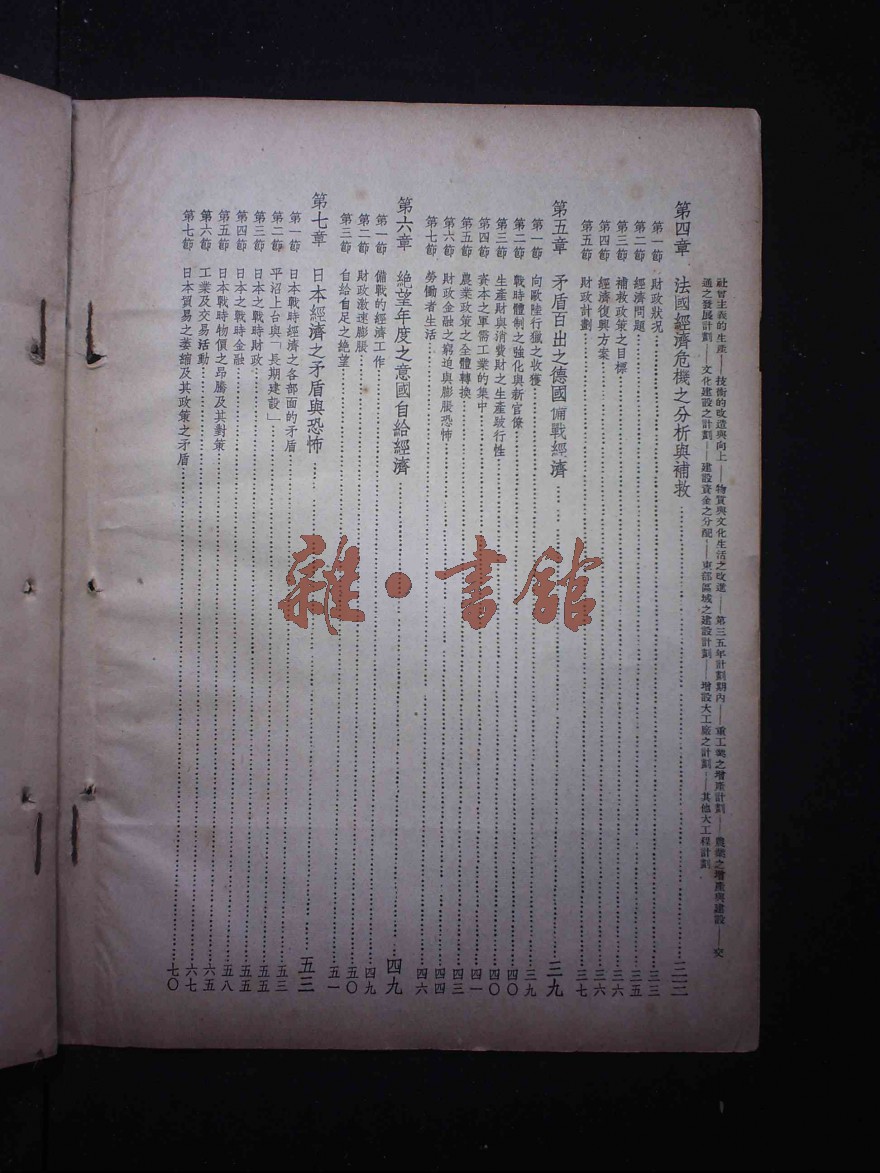 社會主義的生產——技術的改造與向上——物質與文化生活之改進——第三五年計劃期內——重工業之增產計劃——農業之增產與建設——交
通之發展計劃——文化建設之計劃——建設資金之分配——東部區域之建設計劃——增設大工廠之計劃——其他大工程計劃
第四章 法國經濟危機之分析與補救……三三
第一節 財政狀況……三三
第二節 經濟問題……三五
第三節 補救政策之目標……三六
第四節 經濟復興方案……三六
第五節 財政計劃……三七
第五章 矛盾百出之德國備戰經濟……三九
第一節 向歐陸行獵之收獲……三九
第二節 戰時體制之強化與新官僚……四〇
第三節 生產財與消費財之生產跛行性……四〇
第四節 資本之軍需工業的集中……四一
第五節 農業政策之全體轉換……四三
第六節 財政金融之窮迫與膨脹恐怖……四四
第七節 勞働者生活……四六
第六章 絕望年度之意國自給經濟……四九
第一節 備戰的經濟工作……四九
第二節 財政激速膨脹……五〇
第三節 自給自足之絕望……五一
第七章 日本經濟之矛盾與恐怖……五三
第一節 日本戰時經濟之各部面的矛盾……五三
第二節 平沼上台與「長期建設」……五五
第三節 日本之戰時財政……五五
第四節 日本之戰時金融……五八
第五節 日本戰時物價之昂騰及其對策……六五
第六節 工業及交易活動……六七
第七節 日本貿易之萎縮及其政策之矛盾……七〇
雜·書館